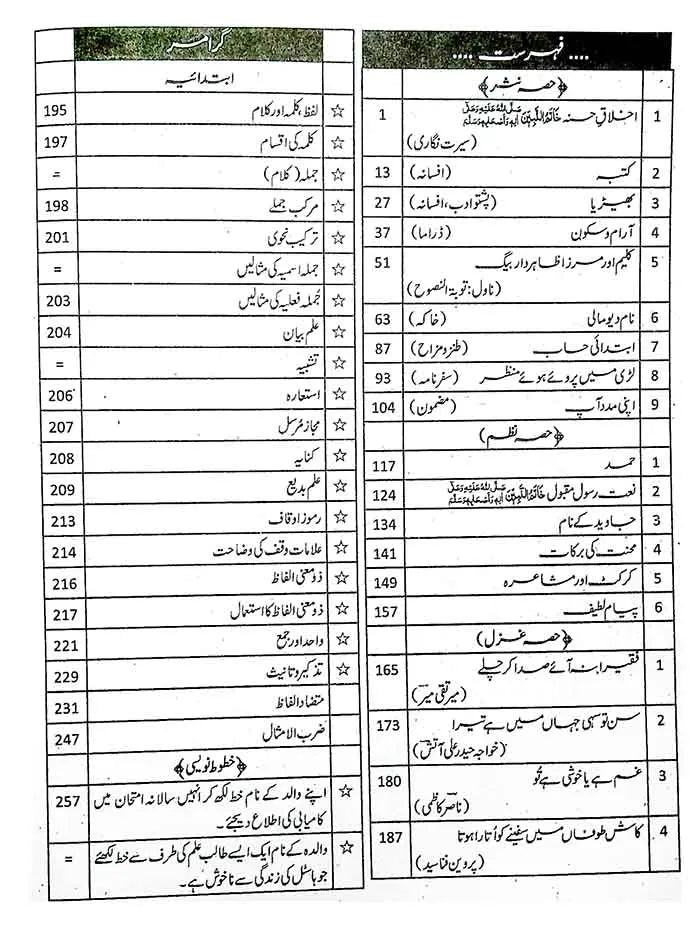 .... فہرست ....
﴿حصہ نثر﴾
1 اخلاقِ حسنہ خَاتَمُ النَّبِیّٖنَ صَلَّی اللہُ عَلَیْہِ وَعَلٰٓی اٰلِہٖ وَاَصْحَابِہٖ وَسَلَّمَ 1
(سیرت نگاری)
2 کتبہ (افسانہ) 13
3 بھیڑیا (پشتو ادب، افسانہ) 27
4 آرام و سکون (ڈراما) 37
5 کلیم اور مرزا ظاہر دار بیگ 51
(ناول: توبۃ النصوح)
6 نام دیو مالی (خاکہ) 63
7 ابتدائی حساب (طنز و مزاح) 87
8 لڑی میں پروئے ہوئے منظر (سفرنامہ) 93
9 اپنی مدد آپ (مضمون) 104
﴿حصہ نظم﴾
1 حمد 117
2 نعت رسول مقبول خَاتَمُ النَّبِیّٖنَ صَلَّی اللہُ عَلَیْہِ وَعَلٰٓی اٰلِہٖ وَاَصْحَابِہٖ وَسَلَّمَ 124
3 جاوید کے نام 134
4 محنت کی برکات 141
5 کرکٹ اور مشاعرہ 149
6 پیام لطیف 157
﴿حصہ غزل﴾
1 فقیرانہ آئے صدا کر چلے 165
(میر تقی میرؔ)
2 سن تو سہی جہاں میں ہے تیرا 173
(خواجہ حیدر علی آتشؔ)
3 غم ہے یا خوشی ہے تُو 180
(ناصر کاظمی)
4 کاش طوفاں میں سفینے کو اُتارا ہوتا 187
(پروین فنا سید)
گرامر
ابتدائیہ
☆ لفظ، کلمہ اور کلام 195
☆ کلمہ کی اقسام 197
☆ جملہ (کلام) =
☆ مرکب جملے 198
☆ ترکیب نحوی 201
☆ جملہ اسمیہ کی مثالیں =
☆ جُملہ فعلیہ کی مثالیں 203
☆ علم بیان 204
☆ تشبیہ =
☆ استعارہ 206
☆ مجاز مُرسل 207
☆ کنایہ 208
☆ علم بدیع 209
☆ رموز اوقاف 213
☆ علامات وقف کی وضاحت 214
☆ ذو معنی الفاظ 216
☆ ذو معنی الفاظ کا استعمال 217
☆ واحد اور جمع 221
☆ تذکیر و تانیث 229
متضاد الفاظ 231
ضرب الامثال 247
﴿خطوط نویسی﴾
☆ اپنے والد کے نام خط لکھ کر انہیں سالانہ امتحان میں 257
کامیابی کی اطلاع دیجئے۔
☆ والدہ کے نام ایک ایسے طالب علم کی طرف سے خط لکھئے =
جو ہاسٹل کی زندگی سے ناخوش ہے۔